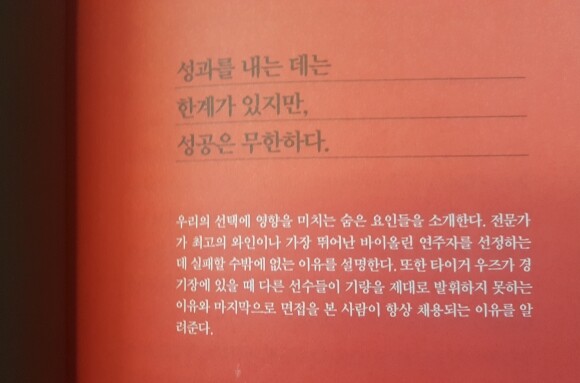 성과를 내는 데는
한계가 있지만,
성공은 무한하다.
우리의 선택에 영향을 미치는 숨은 요인들을 소개한다. 전문가
가 최고의 와인이나 가장 뛰어난 바이올린 연주자를 선정하는
데 실패할 수밖에 없는 이유를 설명한다. 또한 타이거 우즈가 경
기장에 있을 때 다른 선수들이 기량을 제대로 발휘하지 못하는
이유와 마지막으로 면접을 본 사람이 항상 채용되는 이유를 알
려준다.